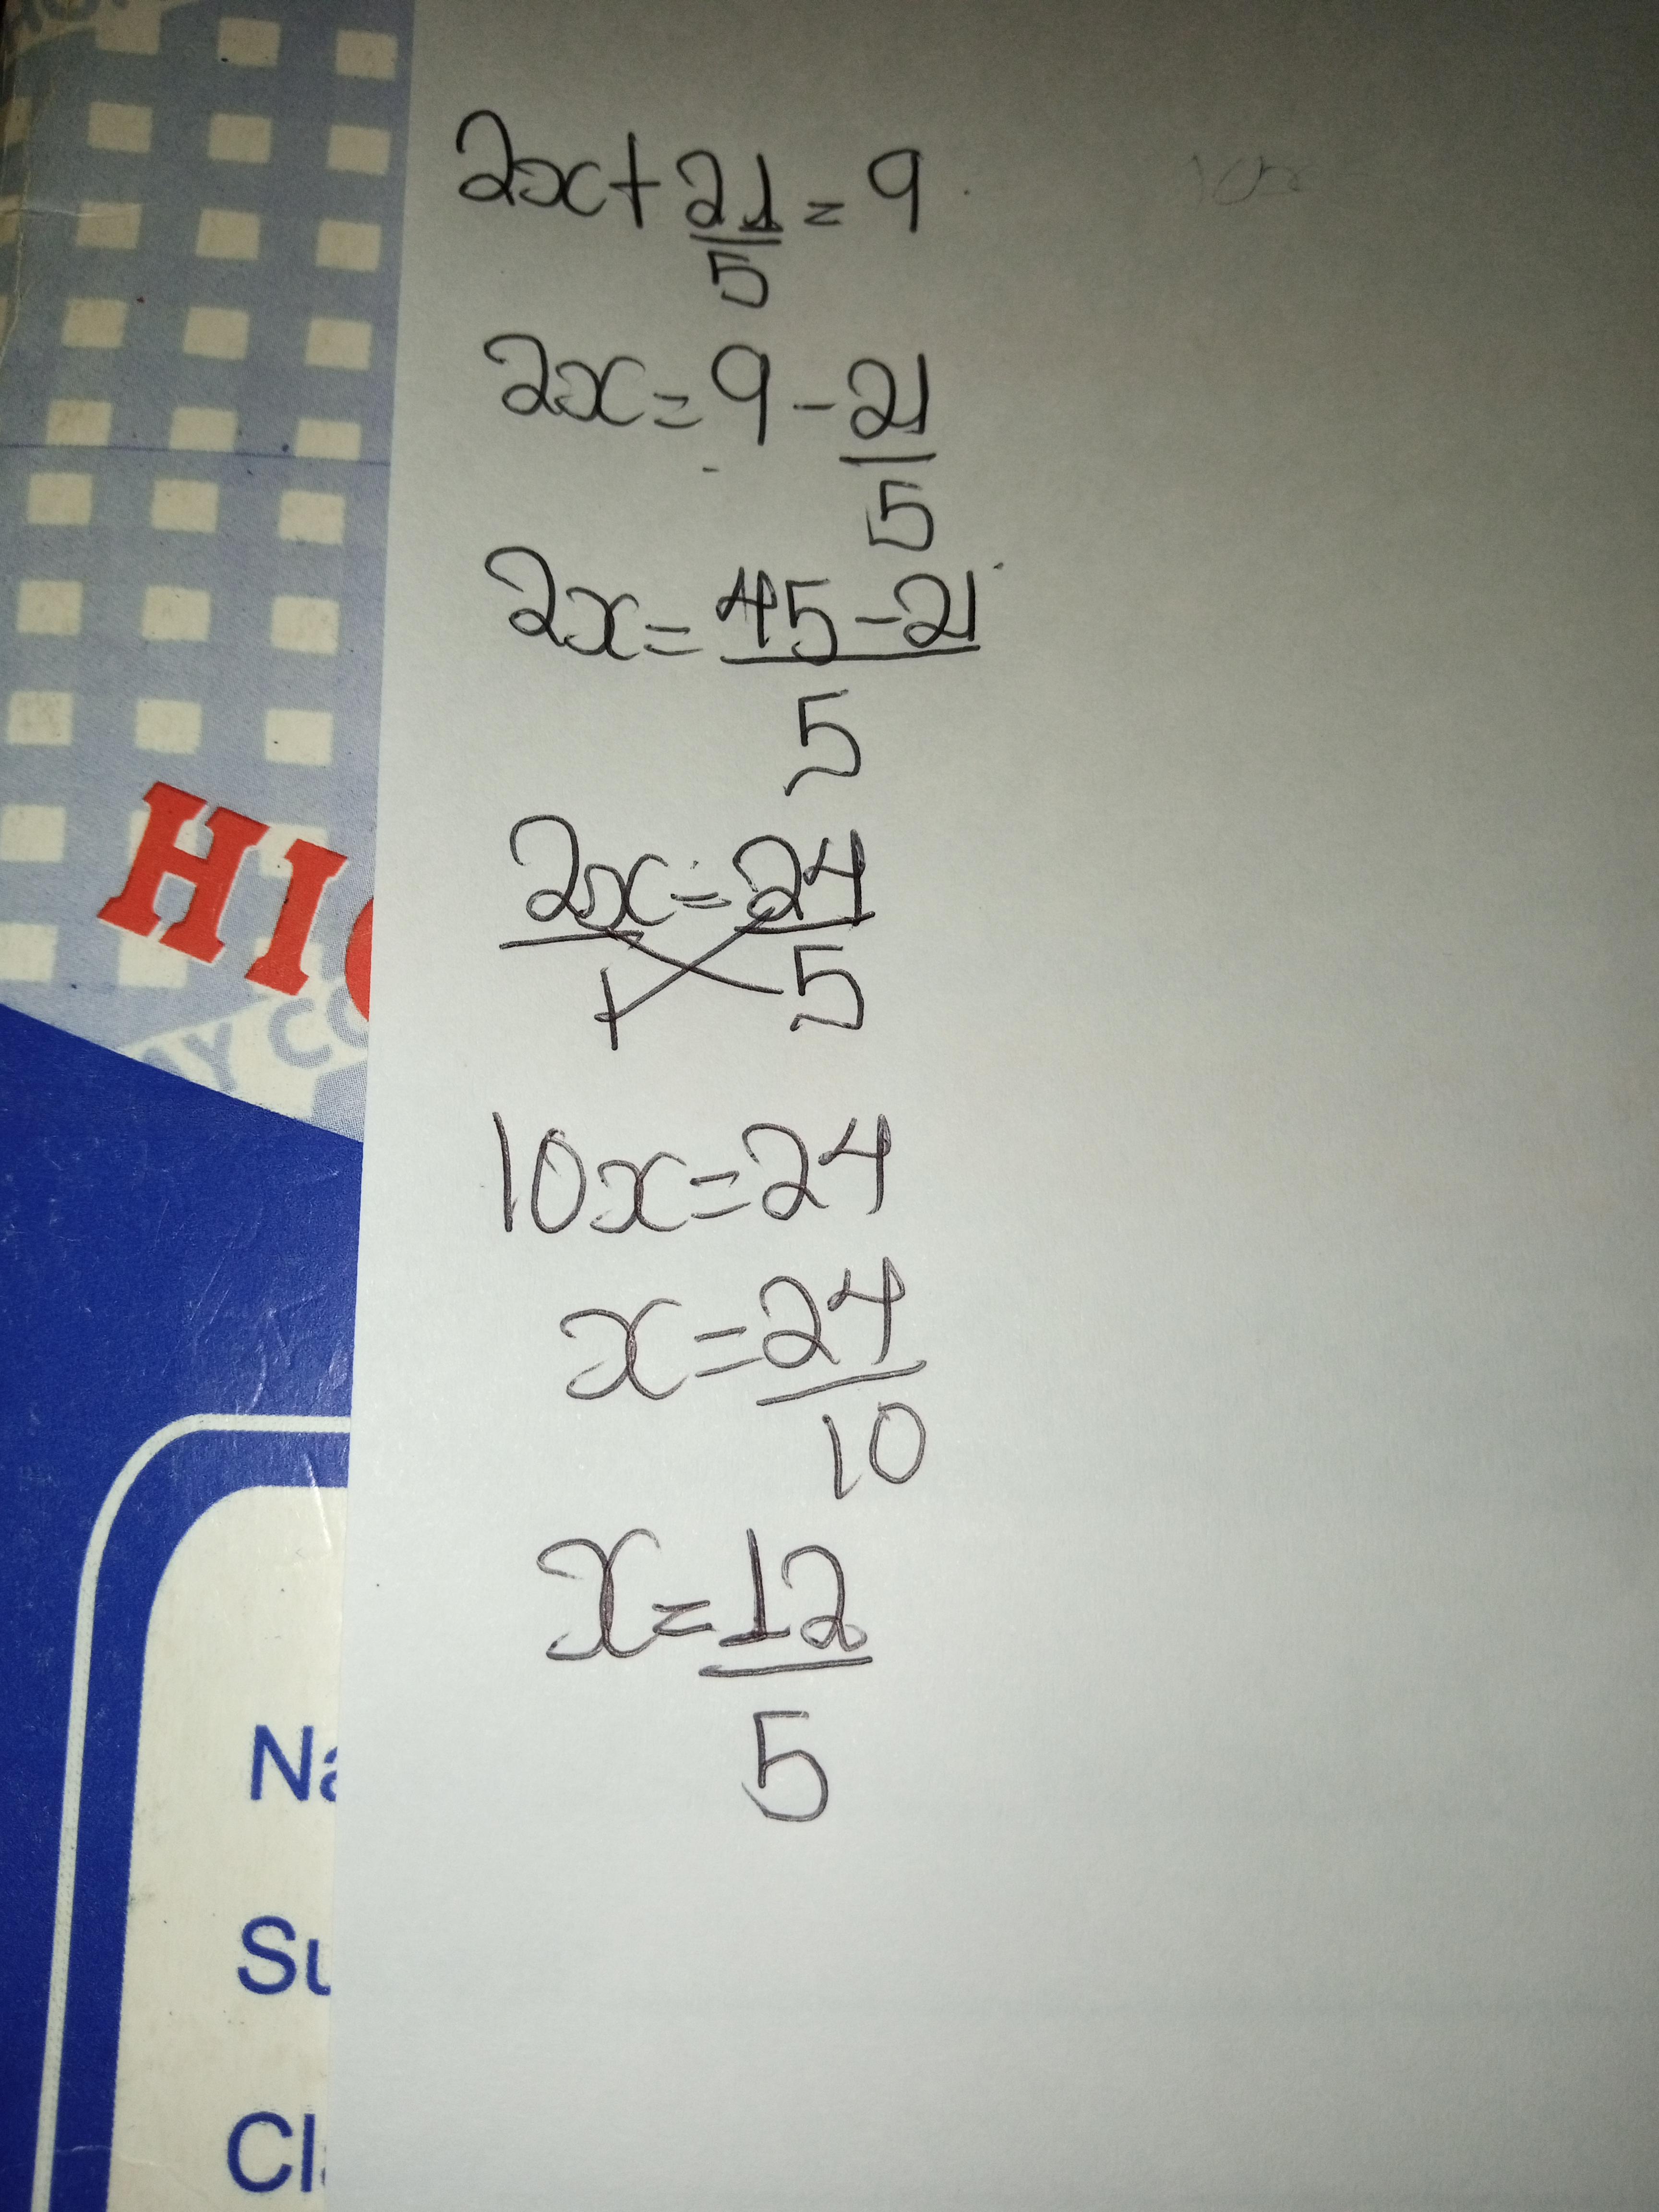 2x + 21/5 = 9
2x = 9 - 21/5
2x = 45 - 21/5
2x/1 = 24/5
10x = 24
x = 24/10
x = 12/5
HI
Na
Su
Cl